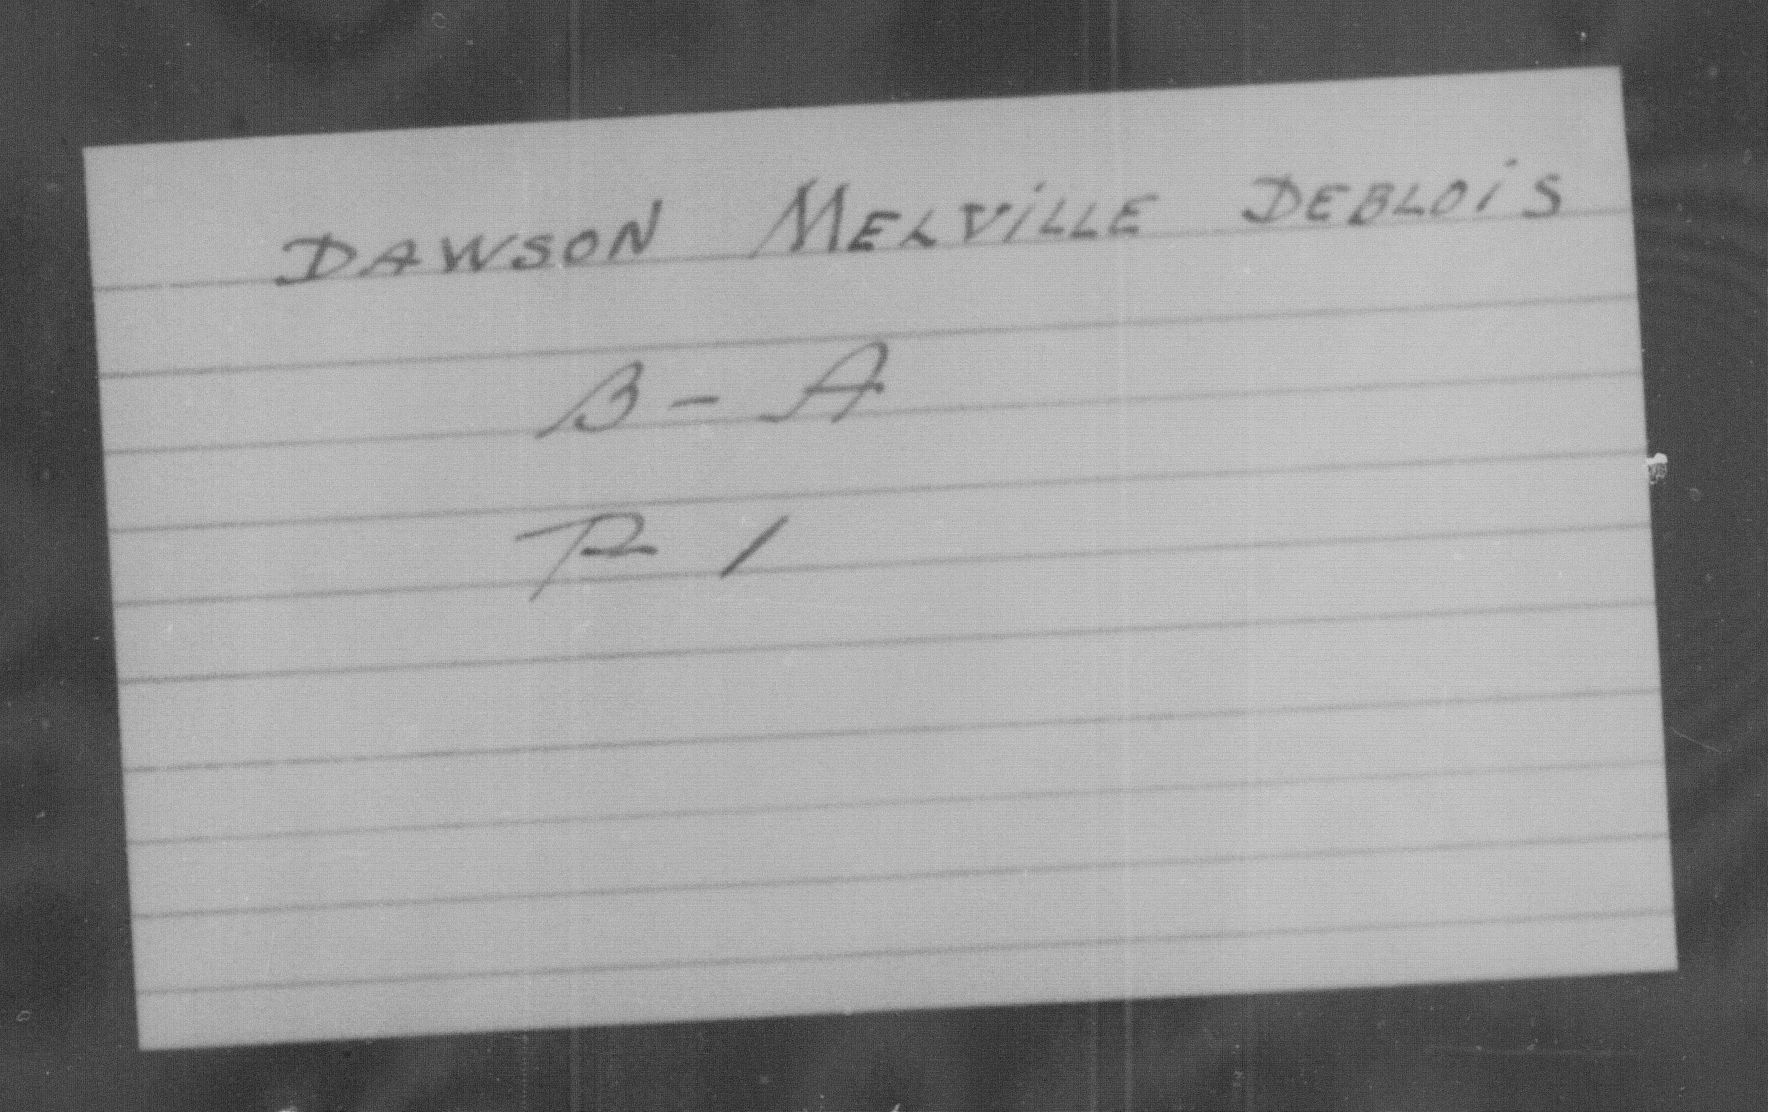 DAWSON MELVILLE DEBLOIS
B - A
R 1